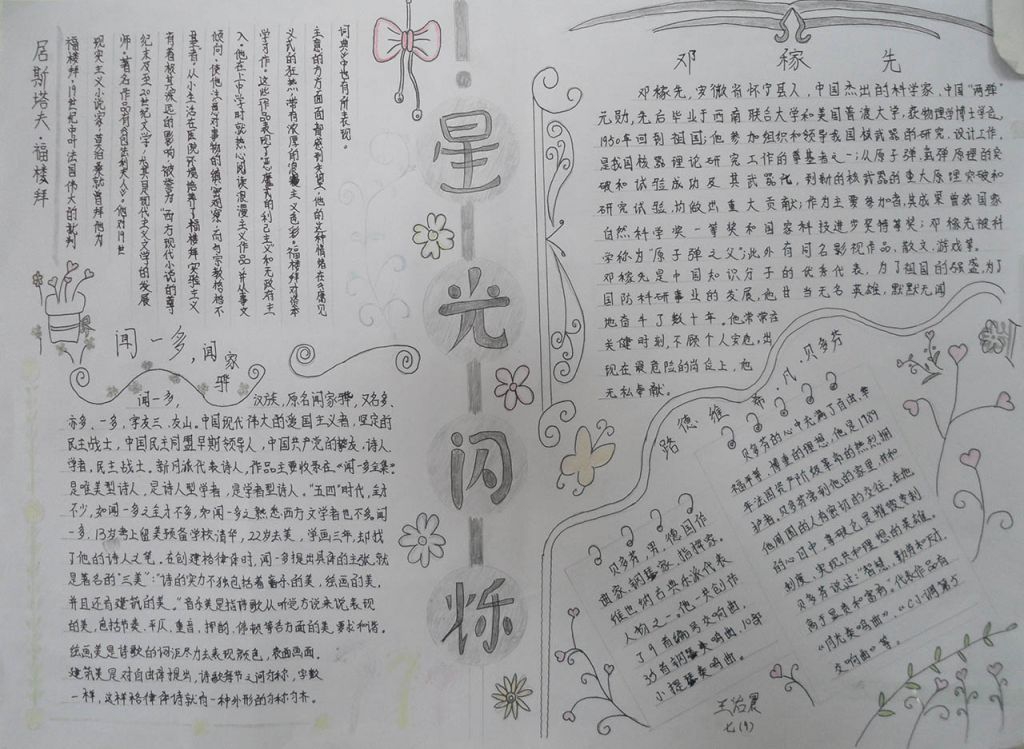 星光闪烁
居斯塔夫·福楼拜
福楼拜,19世纪中叶法国伟大的批判
现实主义小说家,莫泊桑就曾拜他为
师。著名作品有《包法利夫人》。他对19世
纪末及至20世纪文学,尤其是现代主义文学的发展
有着极其深远的影响,被誉为"西方现代小说的尊
基者"。从小生活在医院环境培养了福楼拜实验主义
倾向,使他注意对事物的缜密观察,而与宗教格格不
入。他在上中学时就热心阅读浪漫主义作品,并从事文
学习作,这些作品表现了恶魔式的利己主义和无政府主
义式的狂热,带有浓厚的浪漫主义色彩。福楼拜对资本
主意的方方面面皆感到失望,他的这种情绪在《庸见
词典》中也有所表现。
闻一多,闻家骅
闻一多, 汉族,原名闻家骅,又名多、
亦多、一多,字友三、友山。中国现代伟大的爱国主义者,坚定的
民主战士,中国民主同盟早期领导人,中国共产党的挚友,诗人
学者,民主战士。新月派代表诗人,作品主要收录在《闻一多全集》
是唯美型诗人,是诗人型学者,是学者型诗人。"五四"时代,全才
不少,如闻一多之全才不多,知闻一多之熟悉西方文学者也不多。闻
一多,13岁考上留美预备学校清华,22岁去美,学画三年,却找
了他的诗人之笔。在创建格律体时,闻一多提出具体的主张,就
是著名的"三美":"诗的实力不独包括着音乐的美,绘画的美,
并且还有建筑的美。"音乐美是指诗歌从听觉方说来说表现
的美,包括节奏、平仄、重音、押韵、停顿等各方面的美,要求和谐。
绘画美是诗歌的词汇尽力去表现颜色,表画画面,
建筑美是对自由体提出,诗歌每节之间匀称,字数
一样,这样格律体诗就有一种外形的匀称均齐。
邓稼先
邓稼先,安徽省怀宁县人,中国杰出的科学家,中国"两弹"
元勋,先后毕业于西南联合大学和美国普渡大学,获物理学博士学位。
1950年回到祖国;他参加组织和领导我国核武器的研究、设计工作,
是我国核器理论研究工作的奠基者之一;从原子弹、氢弹原理的突
破和试验成功及其武器化,到新的核武器的重大原理突破和
研究试验,均做出重大贡献;作为主要参加者,其成果曾获国家
自然科学奖一等奖和国家科技进步奖特等奖;邓稼先被科
学称为"原子弹之父";此外有同名影视作品、散文、游戏等。
邓稼先是中国知识分子的优秀代表,为了祖国的强盛,为了
国防科研事业的发展,他甘当无名英雄,默默无闻
地奋斗了数十年。他常常在
关键时刻,不顾个人安危,出
现在最危险的岗位上,他
无私奉献。
路德维希·凡·贝多芬
贝多芬,男,德国作
曲家、钢琴家、指挥家。
维也纳古典乐派代表
人物之一。他一共创作
了9首编号交响曲,
35首钢琴奏鸣曲,10部
小提琴奏鸣曲。
贝多芬的心中充满了自由,幸
福平等、博爱的理想,他是1789
年法国资产阶级革命的热烈拥
护者。贝多芬波到他的家里,并和
他周围的人有密切的交往。在他
的心目中,拿破仑是摧毁专制
制度、实现共和理想的英雄。
贝多芬说过:"智慧,勤劳和友爱
高于显贵和富有。"代表作品有
"月光奏鸣曲"、"C小调第五
交响曲"等。
王治晨
七(9)